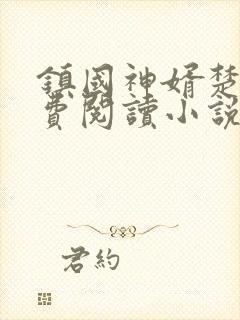 鎮國神婿楚
費閱讀小說
君約